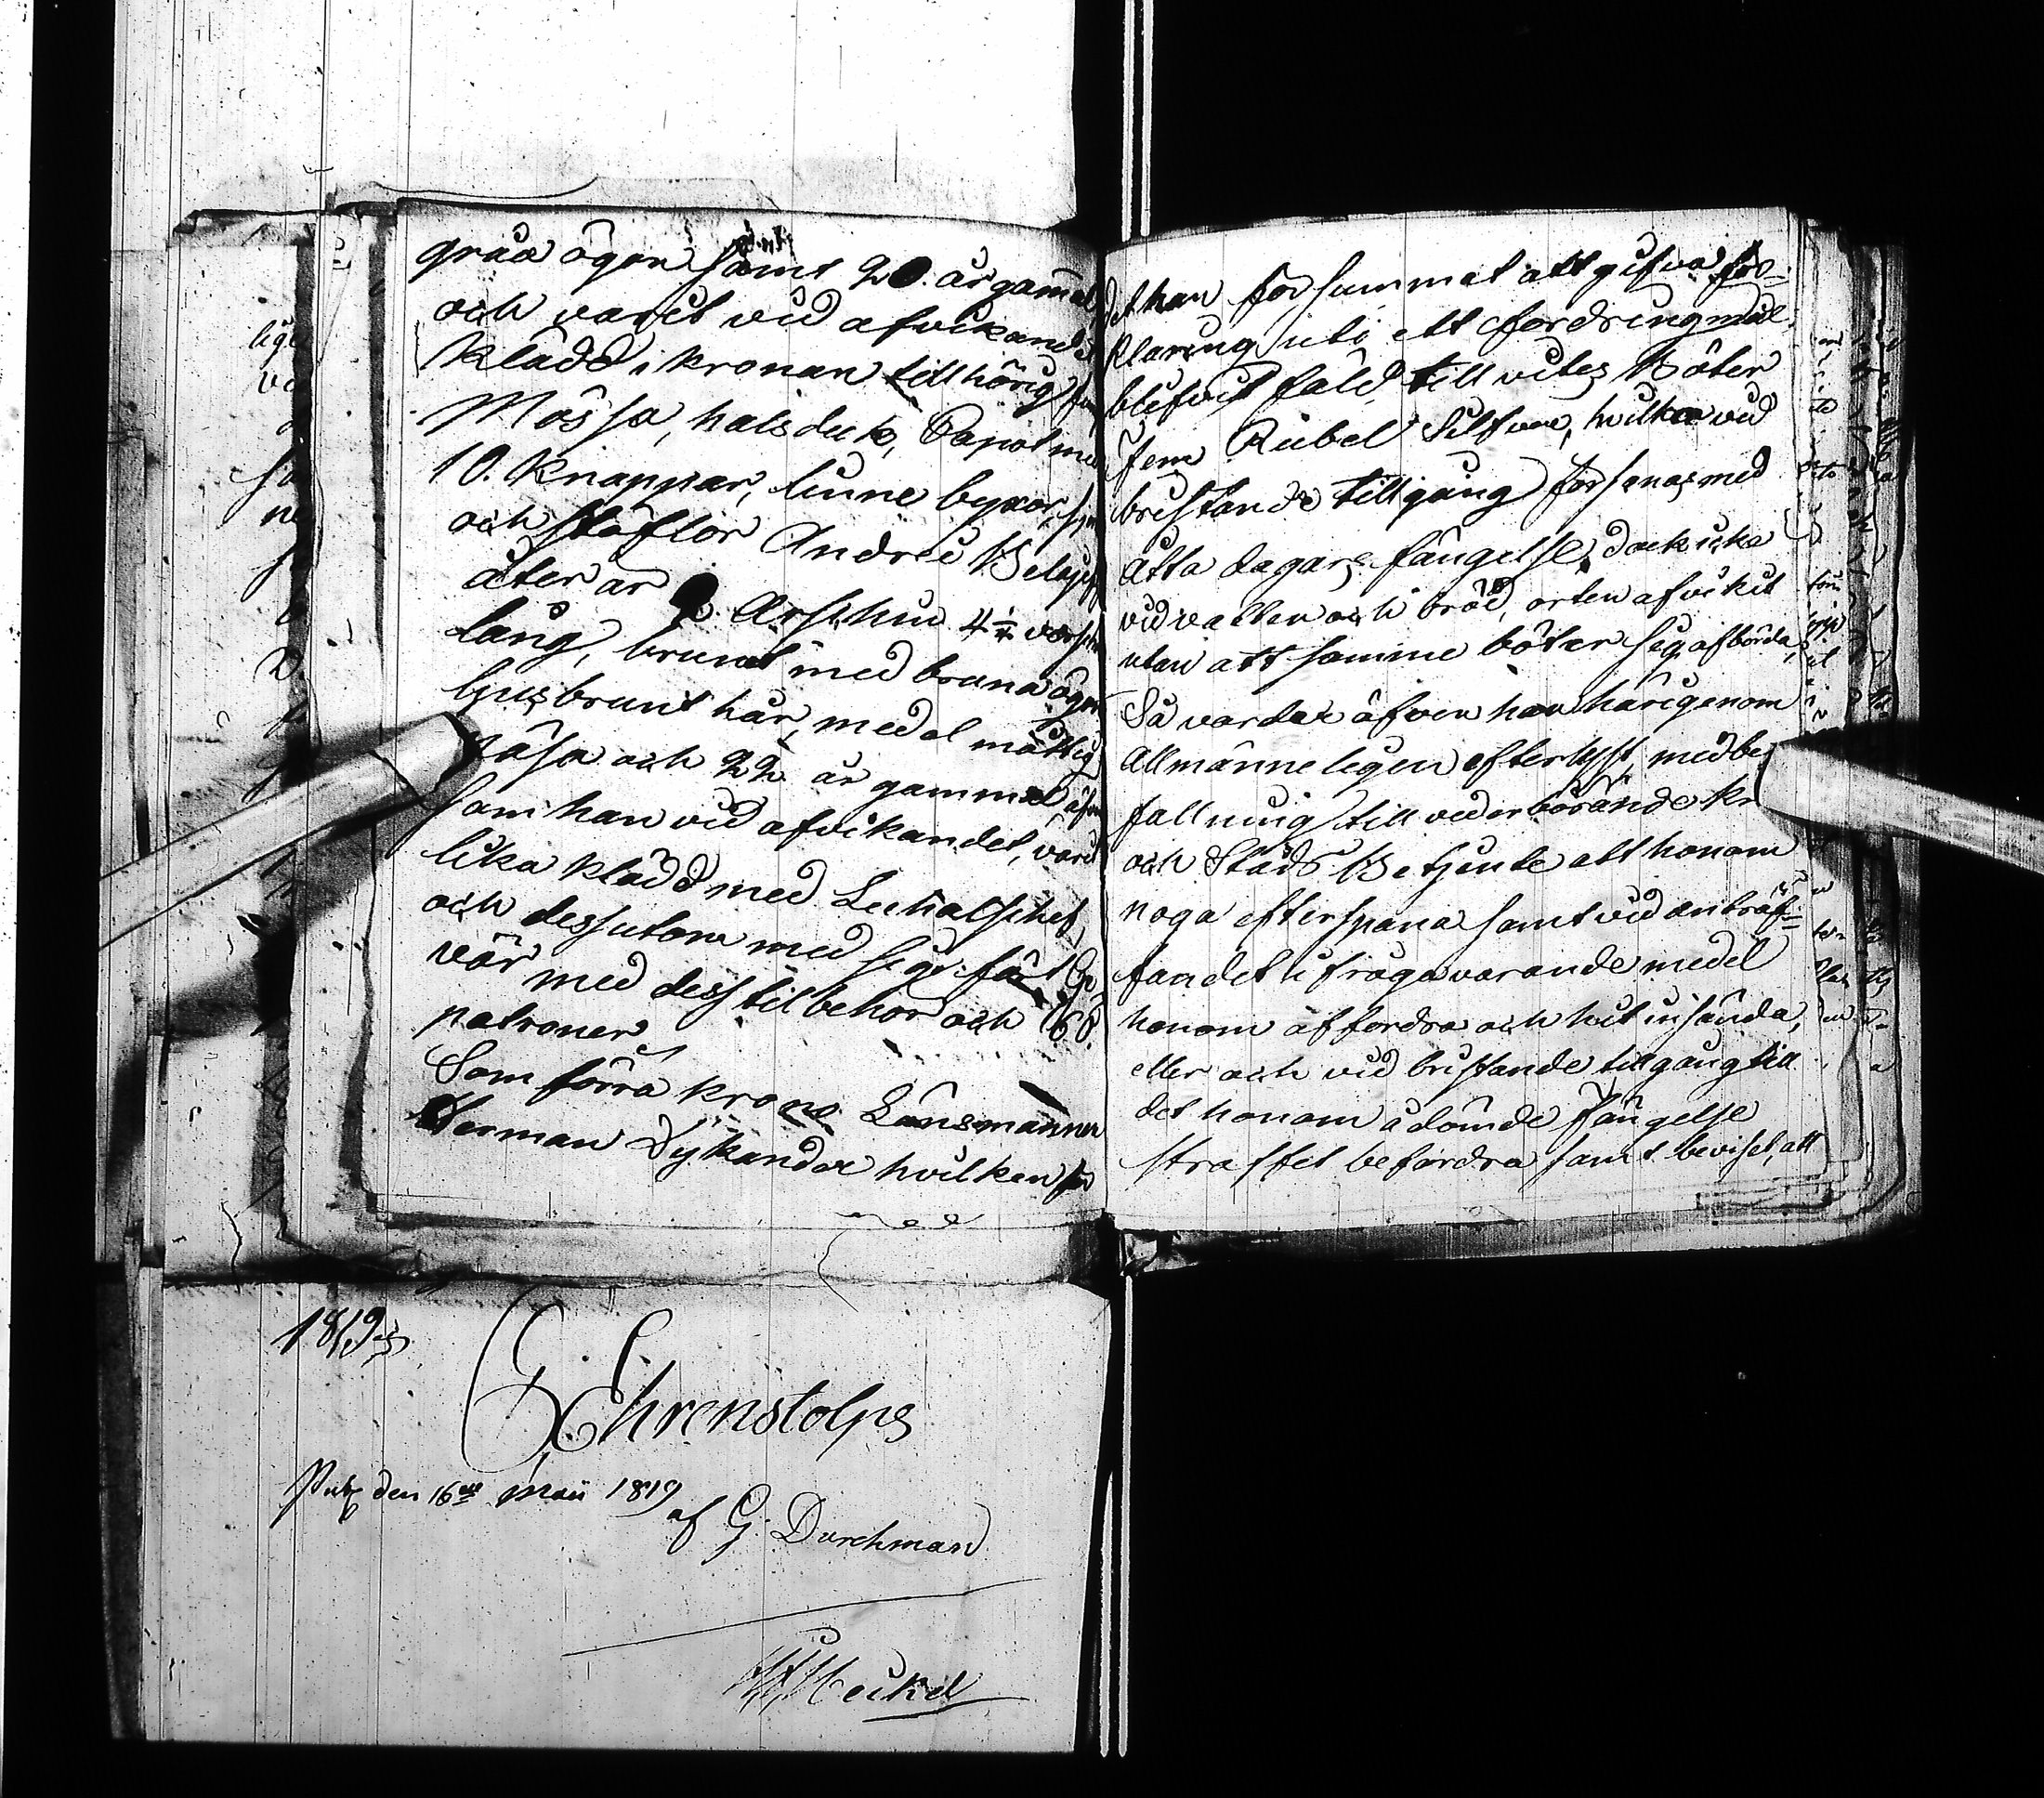 gråa ögon samt 20. år gammal
och varit vid afvikandet
klädd i kronan tillhörig
Mössa, halsduk, Capot med
10. knappar, linne byxor,
och stöflor Andrei
åter är 2 Arschin 4 1/4 versch
lång, brunet med bruna ögon
ljusbrunt hår, medelmåttig
näsa och 22 år gammal, äfven
som han vid afvikandet, varit
lika klädd med
och dessutom med sig fört Ge
vär med dess tilbehör och 60.
patroner.
Som förra krono Länsmannen
Herman Dykander hvilken för
det han försummat att gifva för-
klaring uti ett fordringmål,
blifvit fäld till vites Böter
Fem Rubel Silfver, hvilka vid
bristande tillgång försonas med
Åtta dagars fängelse, dock icke
vid vatten och bröd, orten afvikit
utan att samme böter sig afbörda,
Så varder äfven han härigenom
Allmänneligen efterlyst, med be
fallning till vederbörande kr
och Stads Betjente att honom
noga efterspana samt vid anträf-
fandet ifrågavarande medel
honom affordra och hit insända,
eller och vid bristande tillgång till
det honom ådömde Fängelse
straffet befordra samt beviset, att
1819
Ehrenstolpe
Publ den 16de Maii 1819
af G. Durchman
Heikel